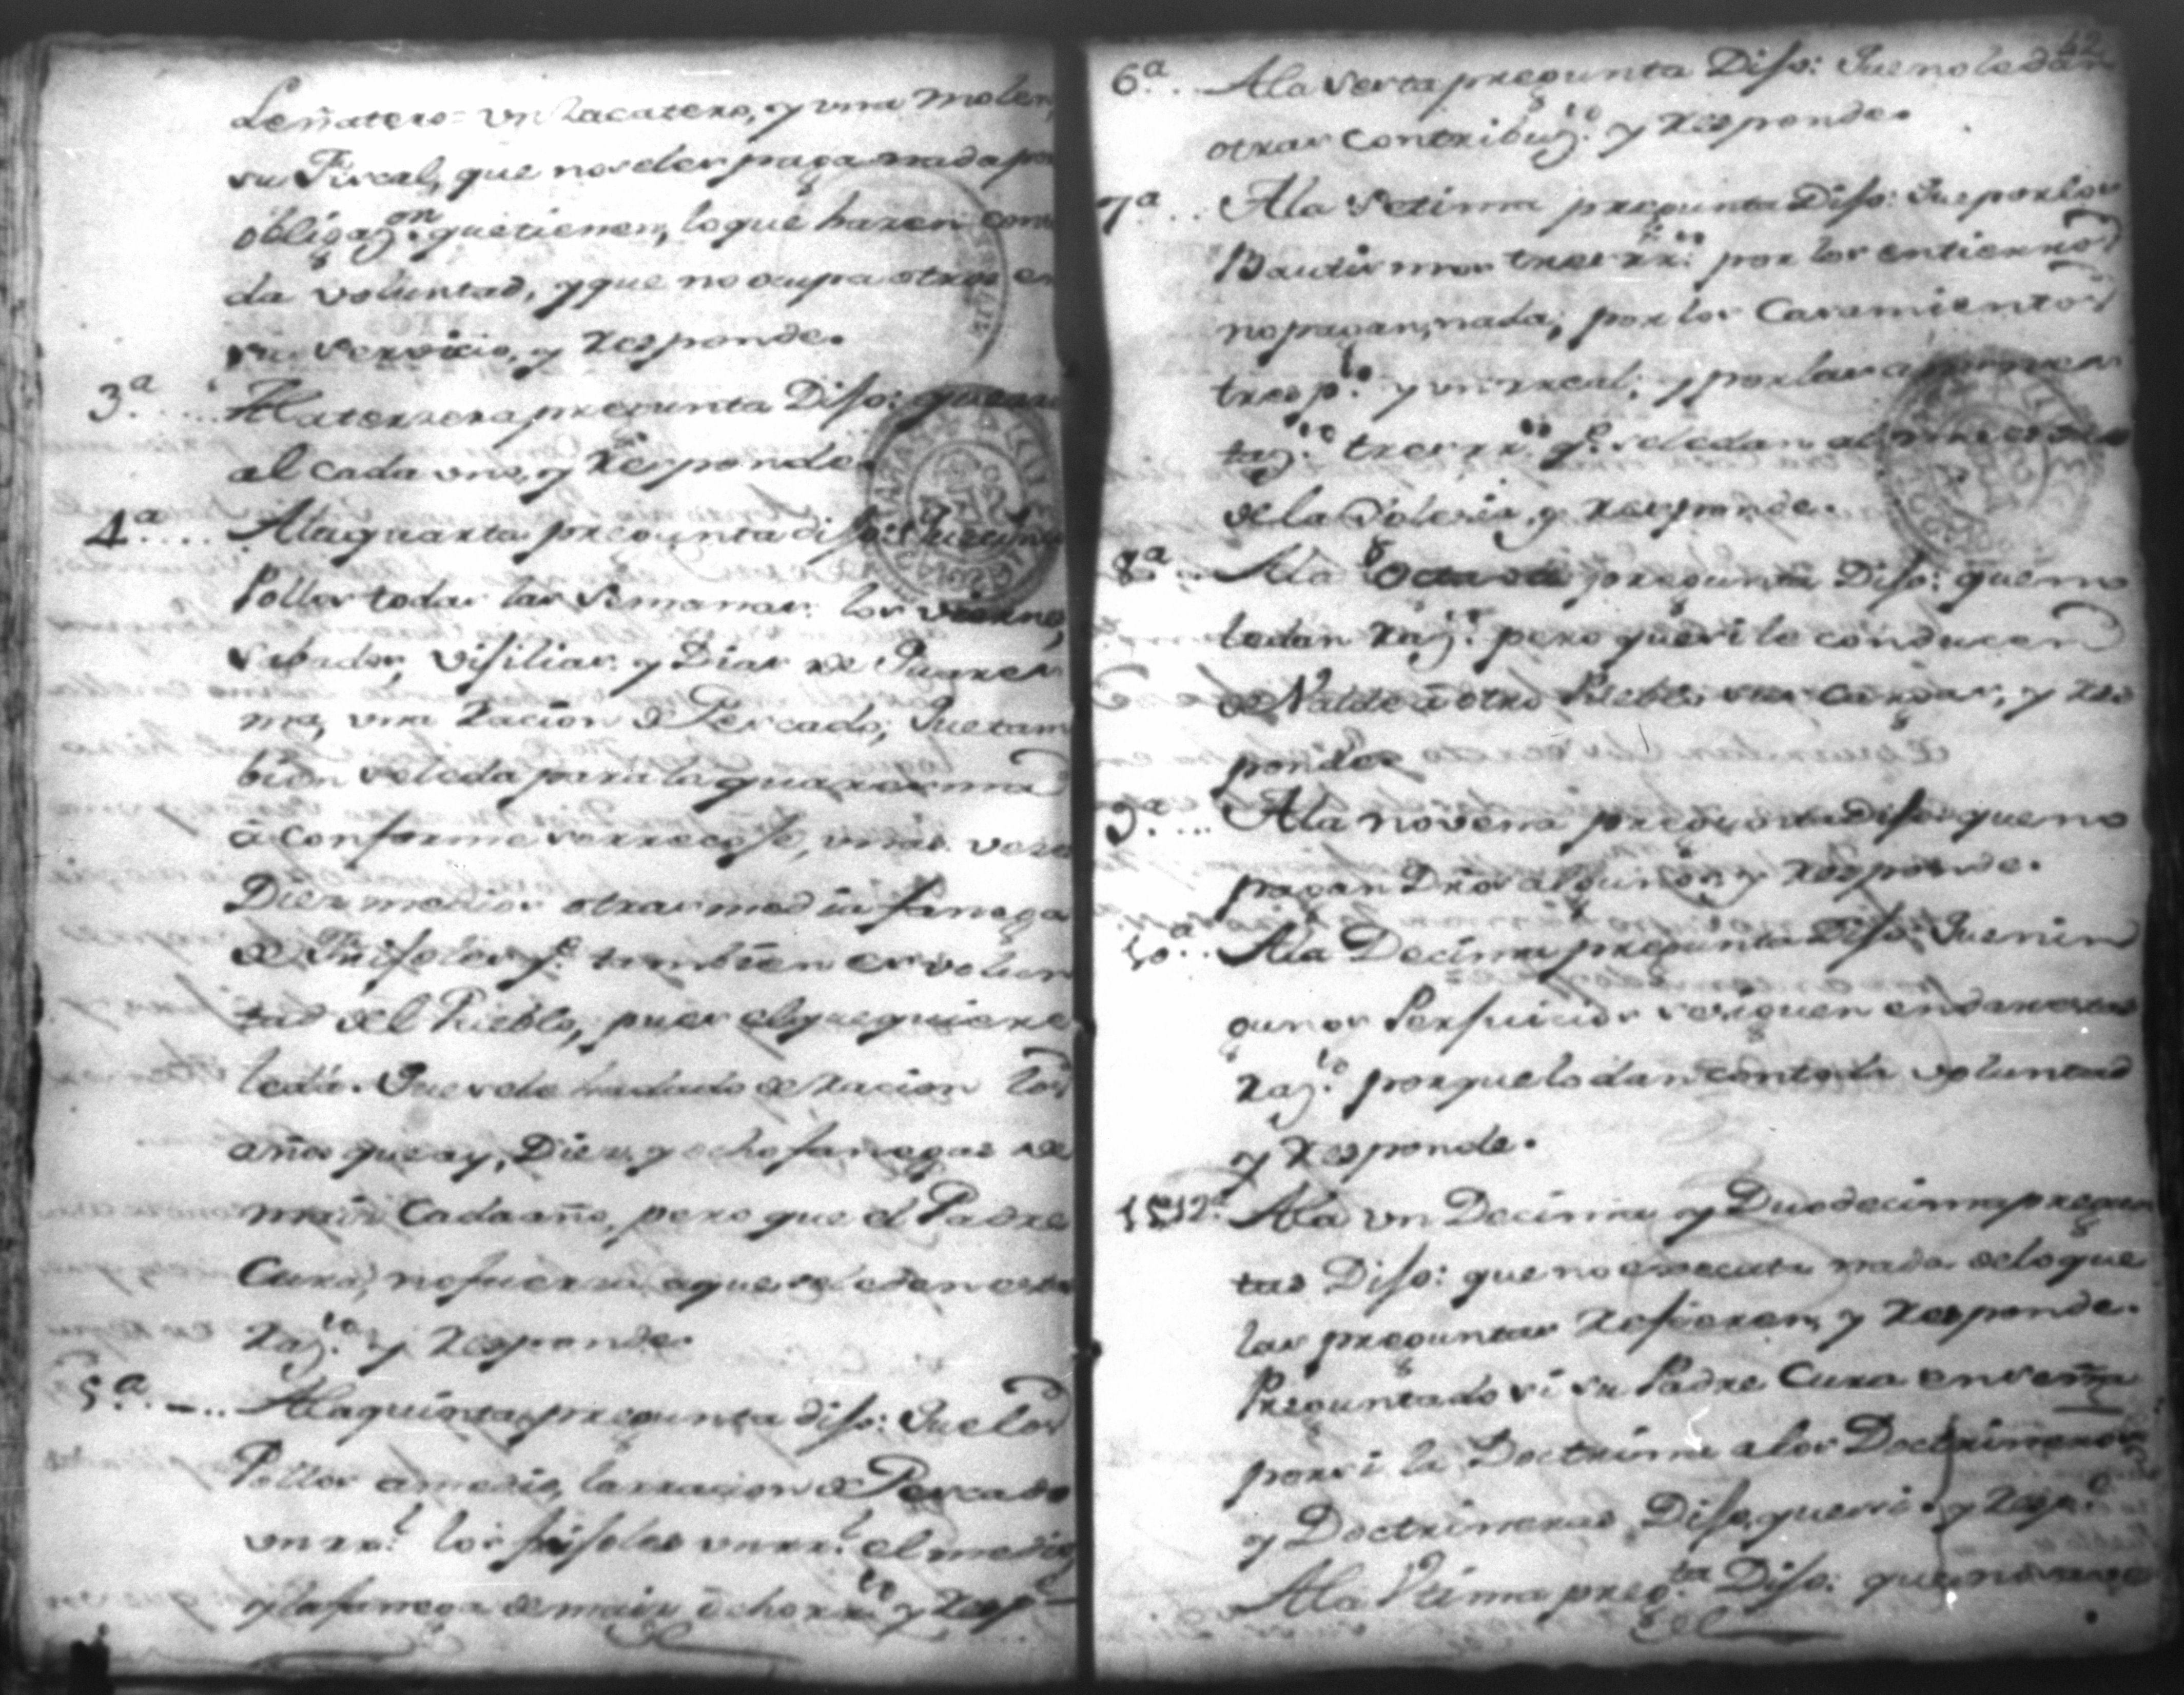 Leñatero = un Zacatero, y una molen
su Fiscal, que no se les paga nada por
obligaz.on que tienen, lo que hazen con to
da voluntad, y que no ocupa otros en
su servicio, y Responde.
3.a .... A la terzera pregunta Dijo:
al cada uno, y Responde.
4.a .... A la quarta pregunta dijo:
Pollos todas las semanas: los viernes,
sabados, visilias y Dias de Quares
ma, una Racion de Pescado; Que tam
bien se le da para la quaresma
a conforme se rrecoje, unas vezes
Diez medios otras media fanega
de Frisoles q.e tambien es volun
tad del Pueblo, pues el que quiere
le da. Que se le ha dado de Racion los
años que ay, Diez y ocho fanegas de
maiz cada año, pero que el Padre
Cura, no fuerza a que se le den esta
Raz.s y Responde.
5.a .... A la quinta pregunta dijo: Que los
Pollos a medio, la rracion de Pescado
un rr.l los frisoles un rr.l el medio
y la fanega de maiz ocho rr.s y Resp.e
62
6.a ... A la sesta pregunta Dijo: Que no le dan
otras contribuz.s y Responde.
7.a .. A la setima pregunta Dijo: Que por los
Bautismos tres rr.s por los entierros
no pagan, nada; por los Casamientos
tres p.s y un rreal; y por las amones
taz.s tres rr.s q.e se le dan al
de la Yglesia, y Responde.
8.a .. A la Octava pregunta Dijo: que no
le dan Raz.s pero que si le conducen
de Valde a otro Pueblo sus cargas, y Res
ponde
9.a ... A la novena pregunta dijo: que no
pagan Dros algunos, y Responde.
10.a .. A la Decima pregunta Dijo: Que nin
gunos Perjuicios se siguen en dar estas
Raz.s porque lo dan con toda voluntad
y Responde.
11 12.a A la un Decima y Duodecima pregun
tas Dijo: que no executa nada de lo que
las preguntas Refieren, y Responde.
Preguntado si su Padre Cura enseña
por si la Doctrina a los Doctrineros
y Doctrineras, Dijo, que si. y Resp.e
A la Vltima preg.ta Dijo: que no